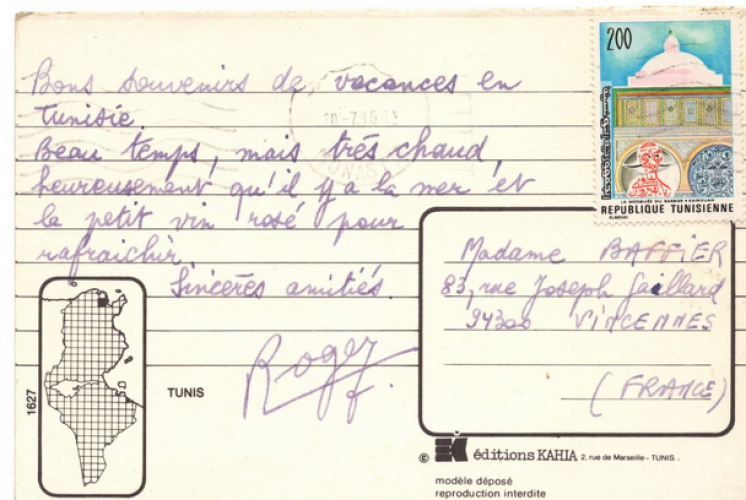 Bons souvenirs de vacances en
Tunisie.
Beau temps, mais très chaud,
heureusement qu'il y a la mer et
le petit vin rosé pour
rafraichir.
Sincères amitiés
Roger
200
LA MOSQUEE DU BARBIER KAIROUAN
REPUBLIQUE TUNISIENNE
Madame BAFFIER
83, rue Joseph Gaillard
94300 VINCENNES
(FRANCE)
1627
TUNIS
© éditions KAHIA 2, rue de Marseille - TUNIS.
modèle déposé
reproduction interdite